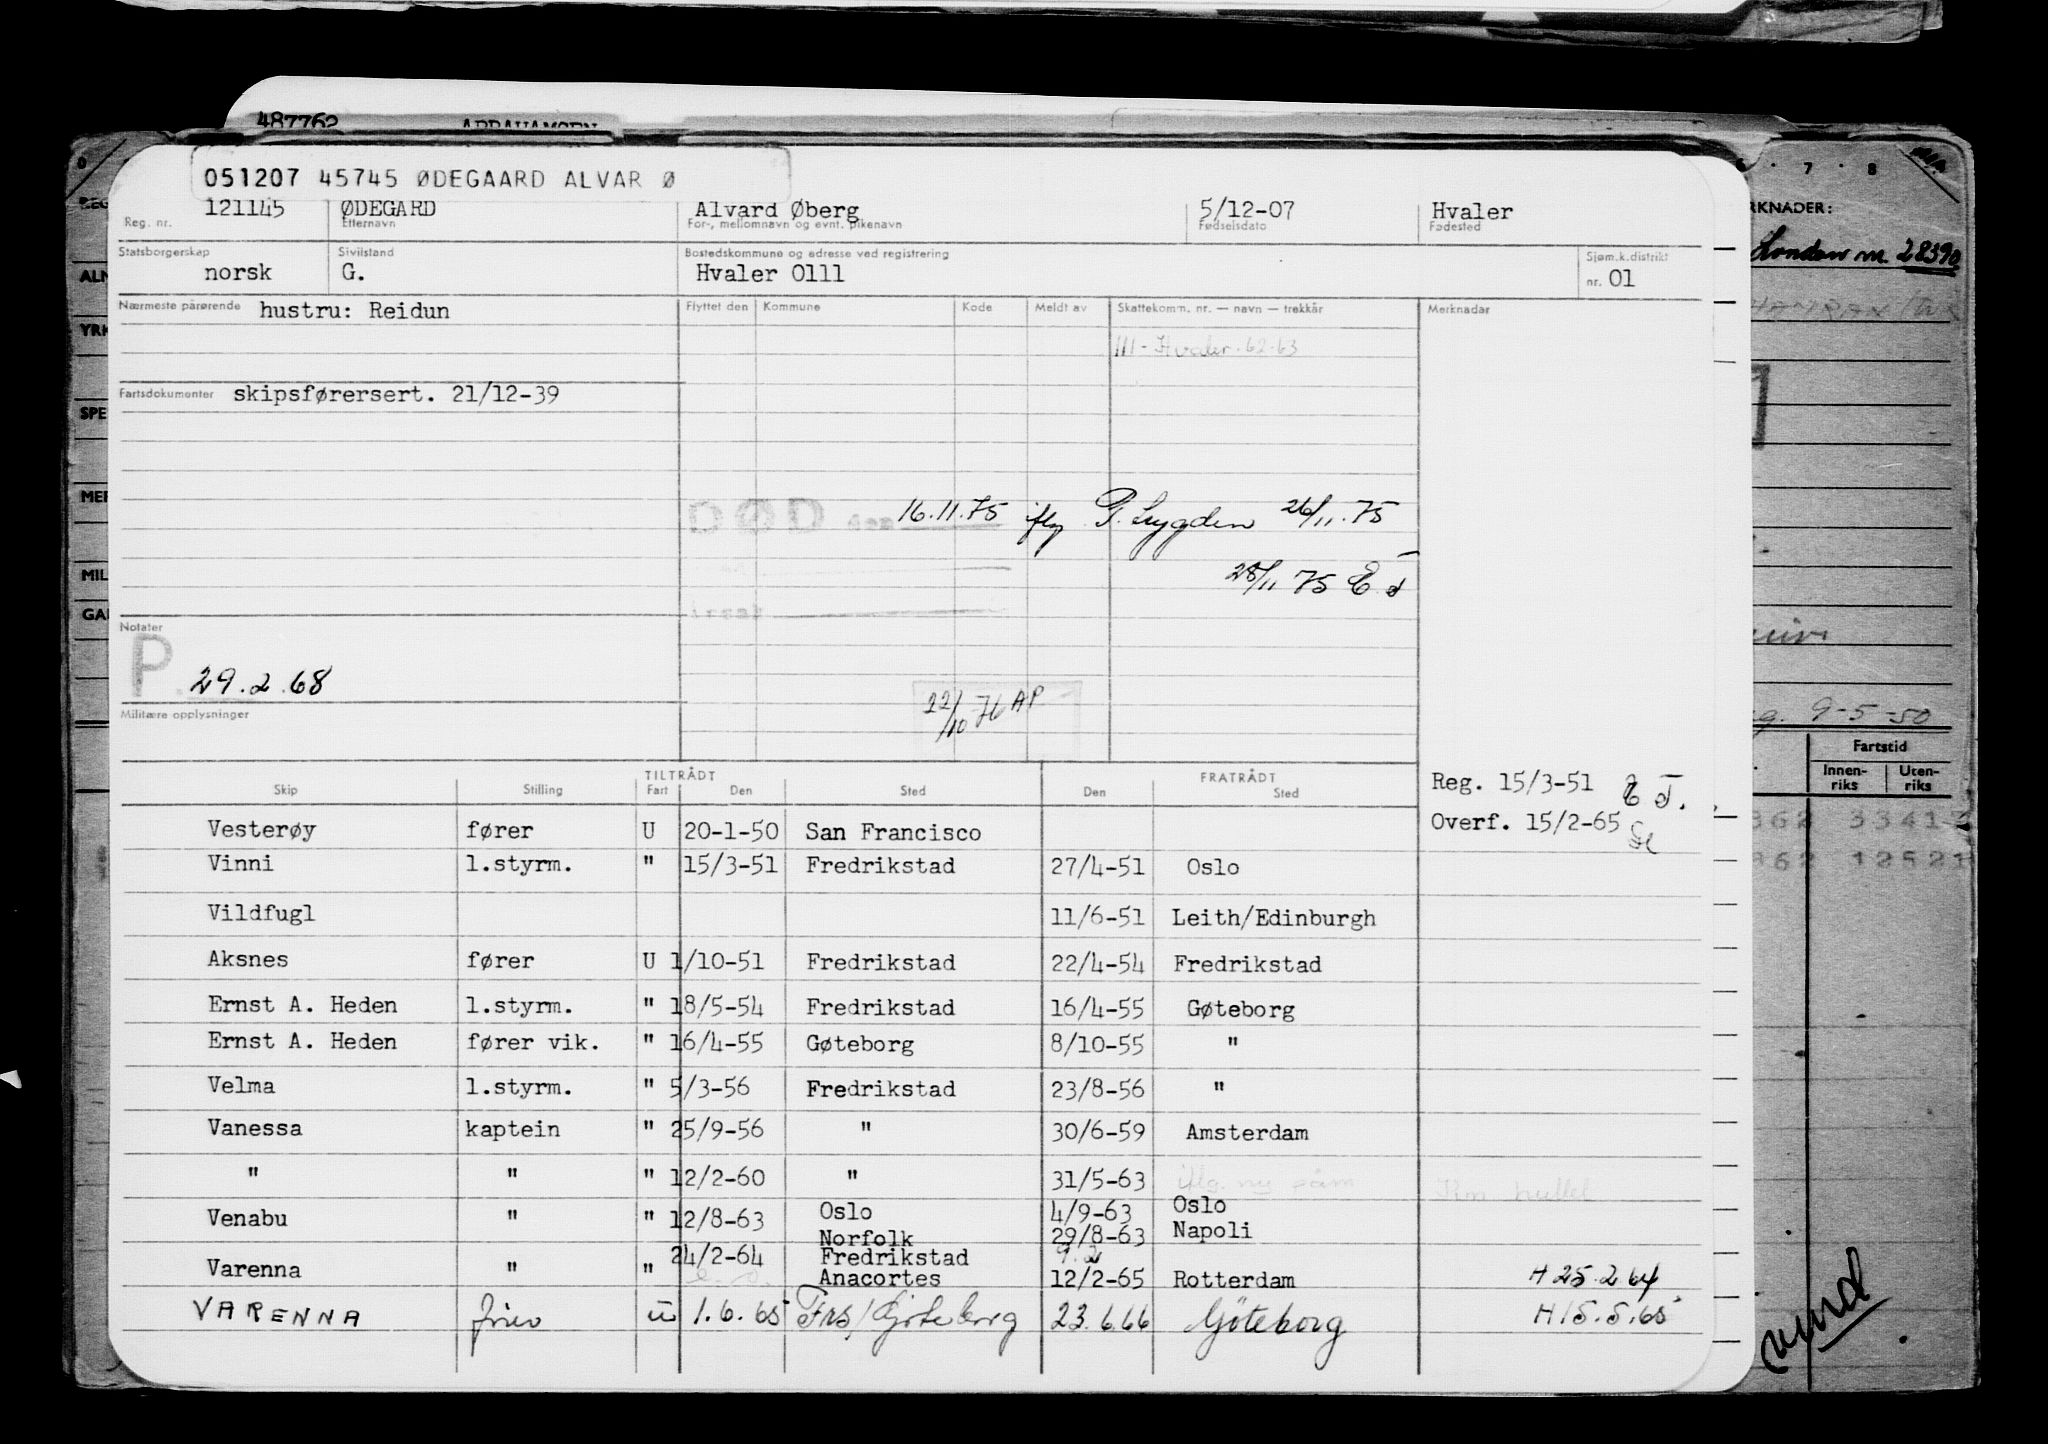 487762 ABRAHAMSEN
051207 45745 ØDEGAARD ALVAR Ø
121145 ØDEGARD Alvard Øberg 5/12-07 Hvaler
Reg. nr. Etternavn For-, mellomnavn og evnt. pikenavn Fødselsdato Fødested
Statsborgerskap Sivilstand Bostedskommune og adresse ved registrering Sjøm.k.distrikt
norsk G. Hvaler 0111 nr. 01
Nærmeste pårørende hustru: Reidun Flyttet den Kommune Kode Meldt av Skattekomm. nr. — navn — trekkår Merknader
111 - Hvaler. 62-63
Fartsdokumenter skipsførersert. 21/12-39
DØD den 16.11.75 iflg P. Lygden 26/11.75
28/11 75
Årsak
Notater
P. 29.2.68
22/10 76 AP
Militære opplysninger
TILTRÅDT FRATRÅDT
Skip Stilling Fart Den Sted Den Sted
Reg. 15/3-51
Overf. 15/2-65
Vesterøy fører U 20-1-50 San Francisco
Vinni 1.styrm. " 15/3-51 Fredrikstad 27/4-51 Oslo
Vildfugl 11/6-51 Leith/Edinburgh
Aksnes fører U 1/10-51 Fredrikstad 22/4-54 Fredrikstad
Ernst A. Heden 1.styrm. " 18/5-54 Fredrikstad 16/4-55 Gøteborg
Ernst A. Heden fører vik. " 16/4-55 Gøteborg 8/10-55 "
Velma 1.styrm. " 5/3-56 Fredrikstad 23/8-56 "
Vanessa kaptein " 25/9-56 " 30/6-59 Amsterdam
" " " 12/2-60 " 31/5-63 iflg. ny
Venabu " " 12/8-63 Oslo 4/9-63 Oslo
Norfolk 29/8-63 Napoli
Varenna " " 24/2-64 Fredrikstad 9.2
Anacortes 12/2-65 Rotterdam H 25.2 64
VARENNA fører u 1.6.65 Frs/Gøteborg 23.6.66 Göteborg H 15.5.65
7 8
RKNADER:
London nr. 28390
9-5-50
Fartstid
Innen-riks Uten-riks
362 3341
362 12521
REG
ALM
YRK
SPE
MER
MIL
GAI